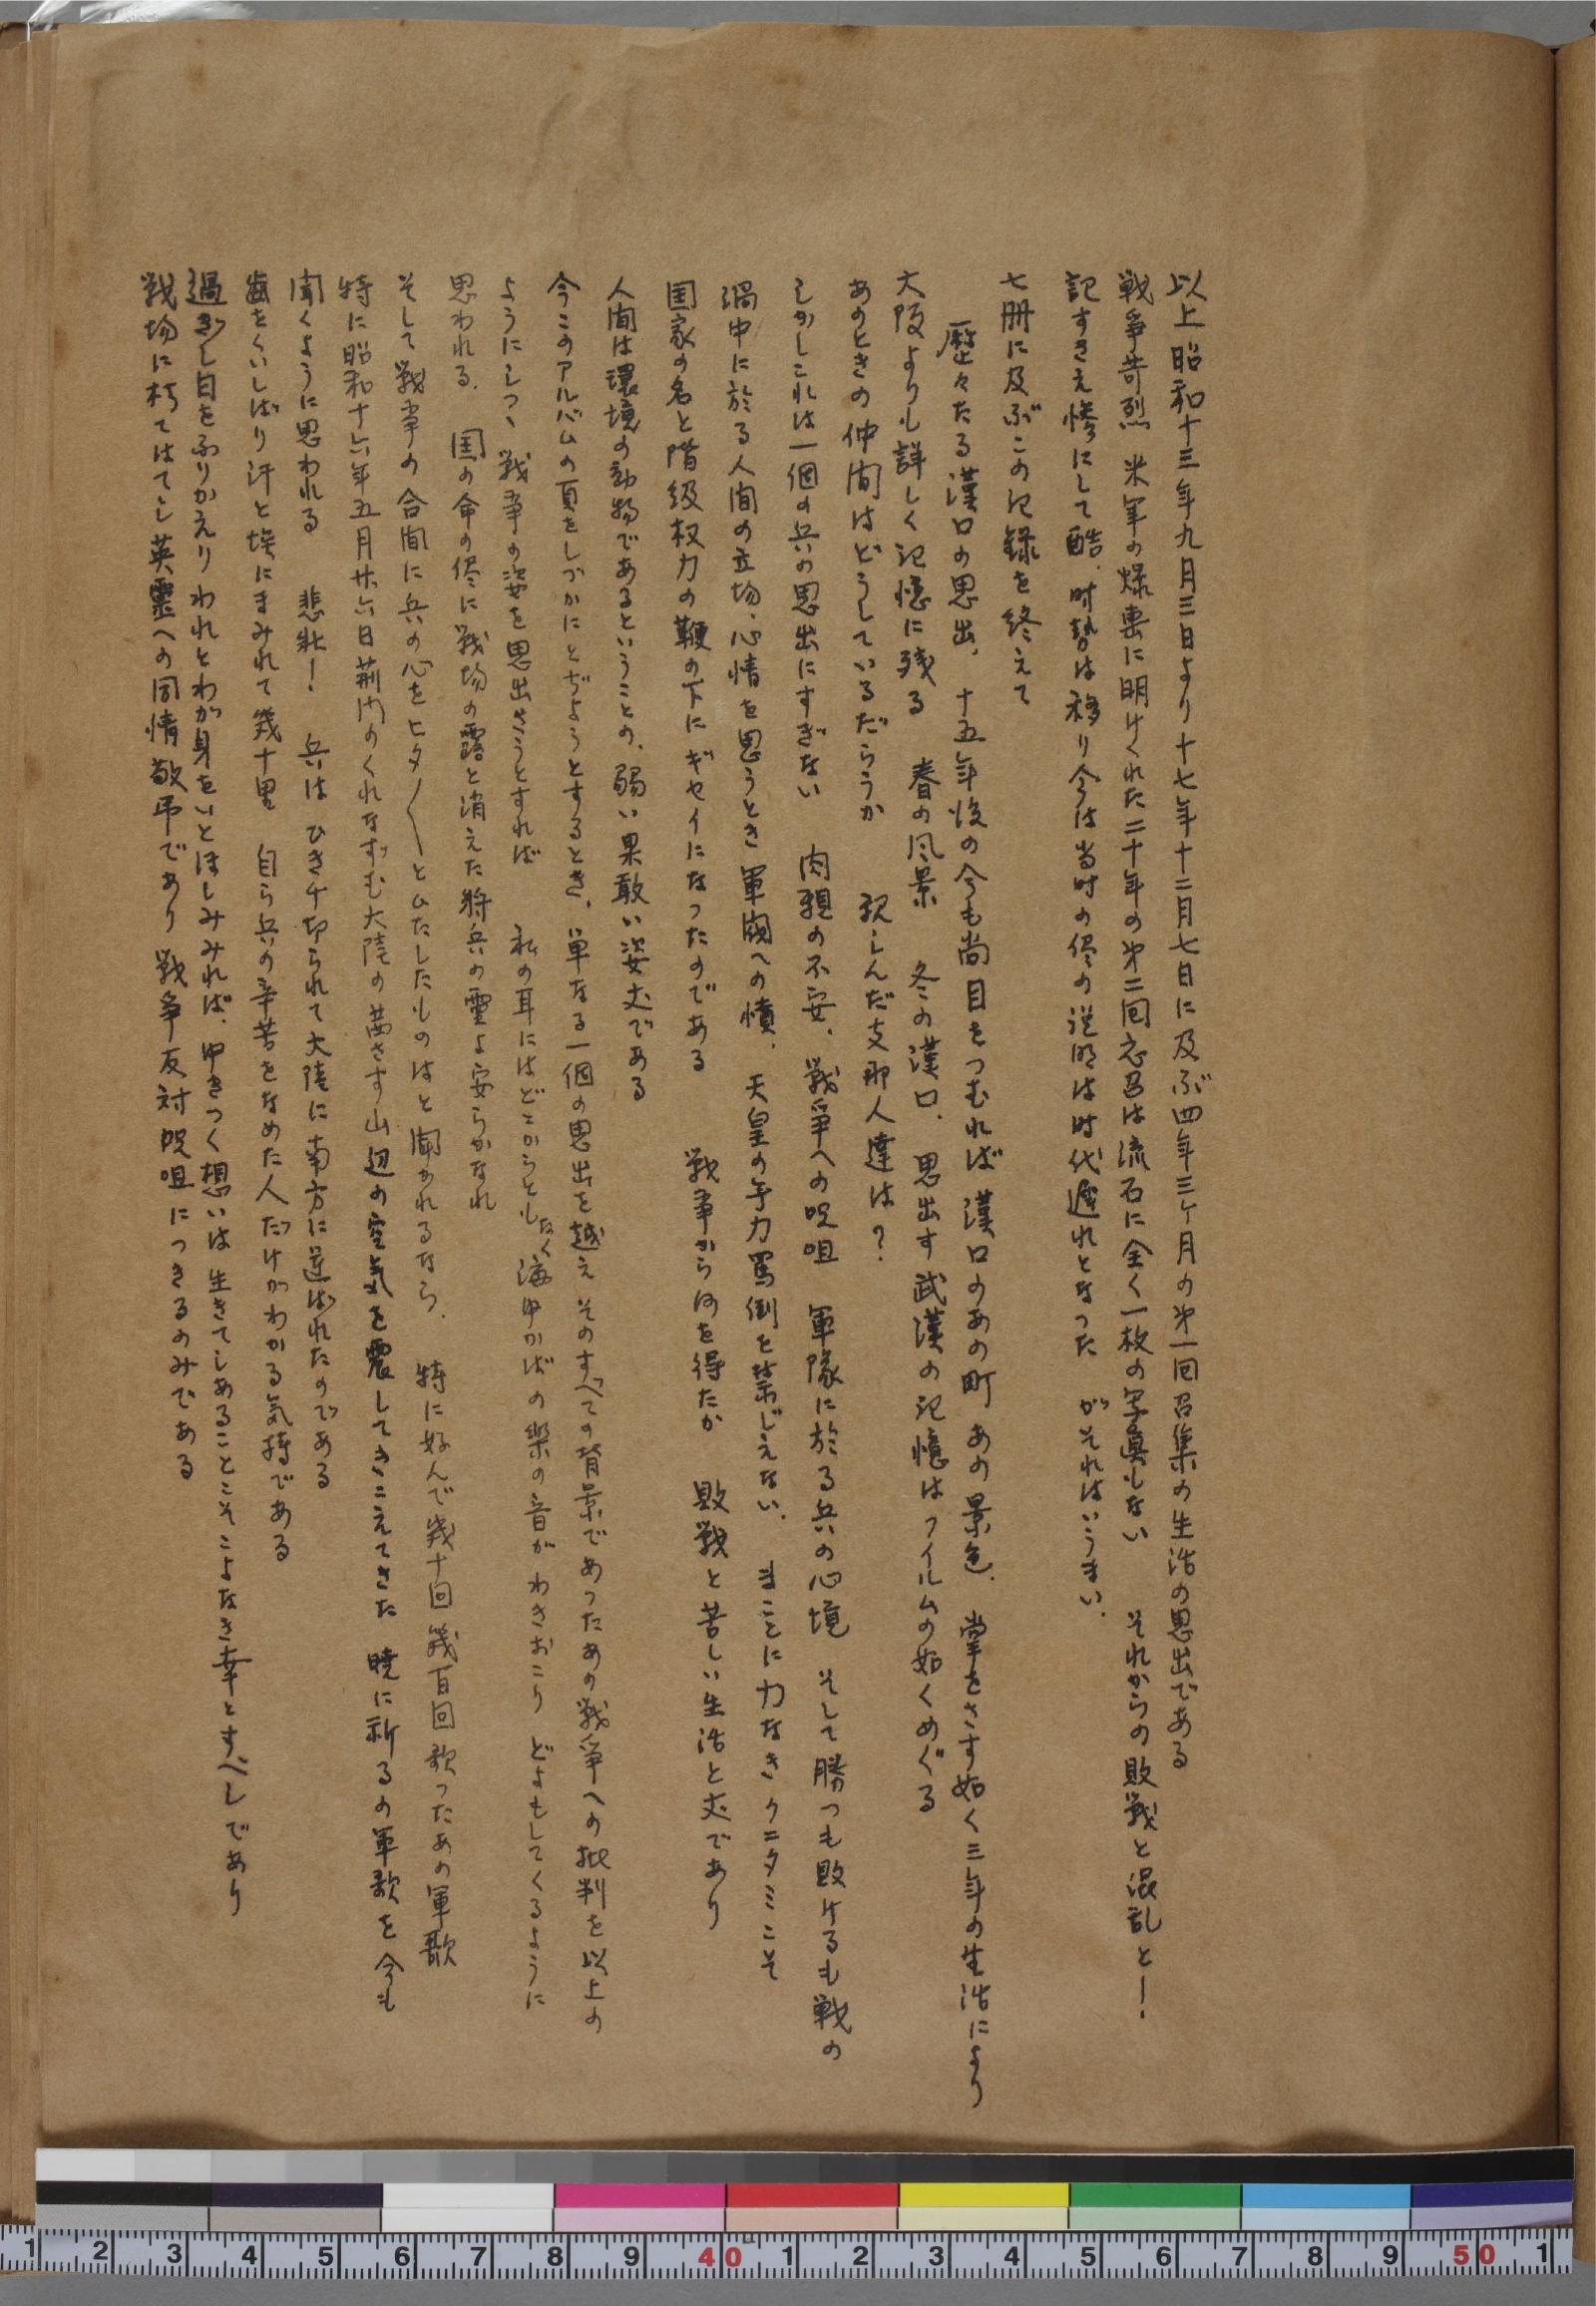 以上昭和十三年九月三日より十七年十二月七日に及ぶ四年三ヶ月の第一回召集の生活の思出である
戦争苛烈 米軍の爆撃に明けくれた二十年の第二回応召は流石に全く一枚の写真もない それからの敗戦と混乱と！
記すさえ惨にして酷、時勢は移り今は当時の侭の説明は時代遅れとなった がそれはいうまい、
七册に及ぶこの記録を終えて
歴々たる漢口の思出、十五年後の今も尚目をつむれば漢口のあの町 あの景色、掌をさす如く三年の生活により
大阪よりも詳しく記憶に残る 春の風景 冬の漢口、思出す武漢の記憶はフイルムの如くめぐる
あのときの仲間はどうしているだらうか 親しんだ支那人達は？
しかしこれは一個の兵の思出にすぎない 肉親の不安、戦争への呪咀 軍隊に於る兵の心境 そして勝つも敗けるも戦の
渦中に於る人間の立場、心情を思うとき軍閥への憤、天皇の無力罵倒を禁じえない、まことに力なきクニタミこそ
国家の名と階級权力の鞭の下にギセイになつたのである 戦争から何を得たか 敗戦と苦しい生活と丈であり
人間は環境の動物であるということの、弱い果敢い姿丈である
今このアルバムの頁をしづかにとぢようとするとき、単なる一個の思出を越え そのすべての背景であつたあの戦争への批判を以上の
ようにしつゝ戦争の姿を思出さうとすれば 私の耳にはどこからともなく海ゆかばの楽の音がわきおこり どよもしてくるように
思われる、 国の命の侭に戦場の露と消えた将兵の霊よ安らかなれ
そして戦争の合間に兵の心をヒタ〳〵とひたしたものはと聞かれるなら、 特に好んで幾十回幾百回歌つたあの軍歌
特に昭和十六年五月廿六日荊門のくれなずむ大陸の茜さす山辺の空気を震してきこえてきた 暁に祈るの軍歌を今も
聞くように思われる 悲壮！ 兵は ひき千切られて大陸に南方に運ばれたのである
歯をくいしばり汗と埃にまみれて幾十里 自ら兵の辛苦をなめた人だけがわかる気持である
過ぎし日をふりかえり われとわが身をいとほしみみれば、ゆきつく想いは生きてしあることこそこよなき幸とすべしであり
戦場に朽てはてし英霊への同情敬弔であり 戦争反対呪咀につきるのみである
1 2 3 4 5 6 7 8 9 40 1 2 3 4 5 6 7 8 9 50 1